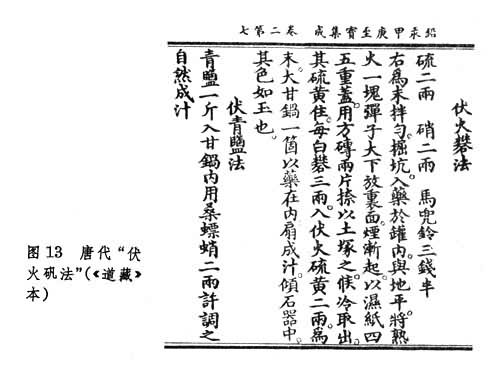 鉛汞甲庚至寶集成 卷二第七
伏火礬法
硫二兩 硝二兩 馬兜鈴三錢半
右爲末拌勻。掘坑。入藥於罐內。與地平。將熟
火一塊彈子大下放裏面。煙漸起。以濕紙四
五重蓋。用方磚兩片捺以土塚之。候冷取出。
其硫黃住。每白礬三兩。入伏火硫黃二兩。爲
末。大甘鍋一箇以藥在內扇成汁。傾石器中。
其色如玉也。
伏青鹽法
青鹽一斤入甘鍋內用桑螵蛸二兩許調之
自然成汁
图13 唐代“伏
火矾法”(《道藏》
本)